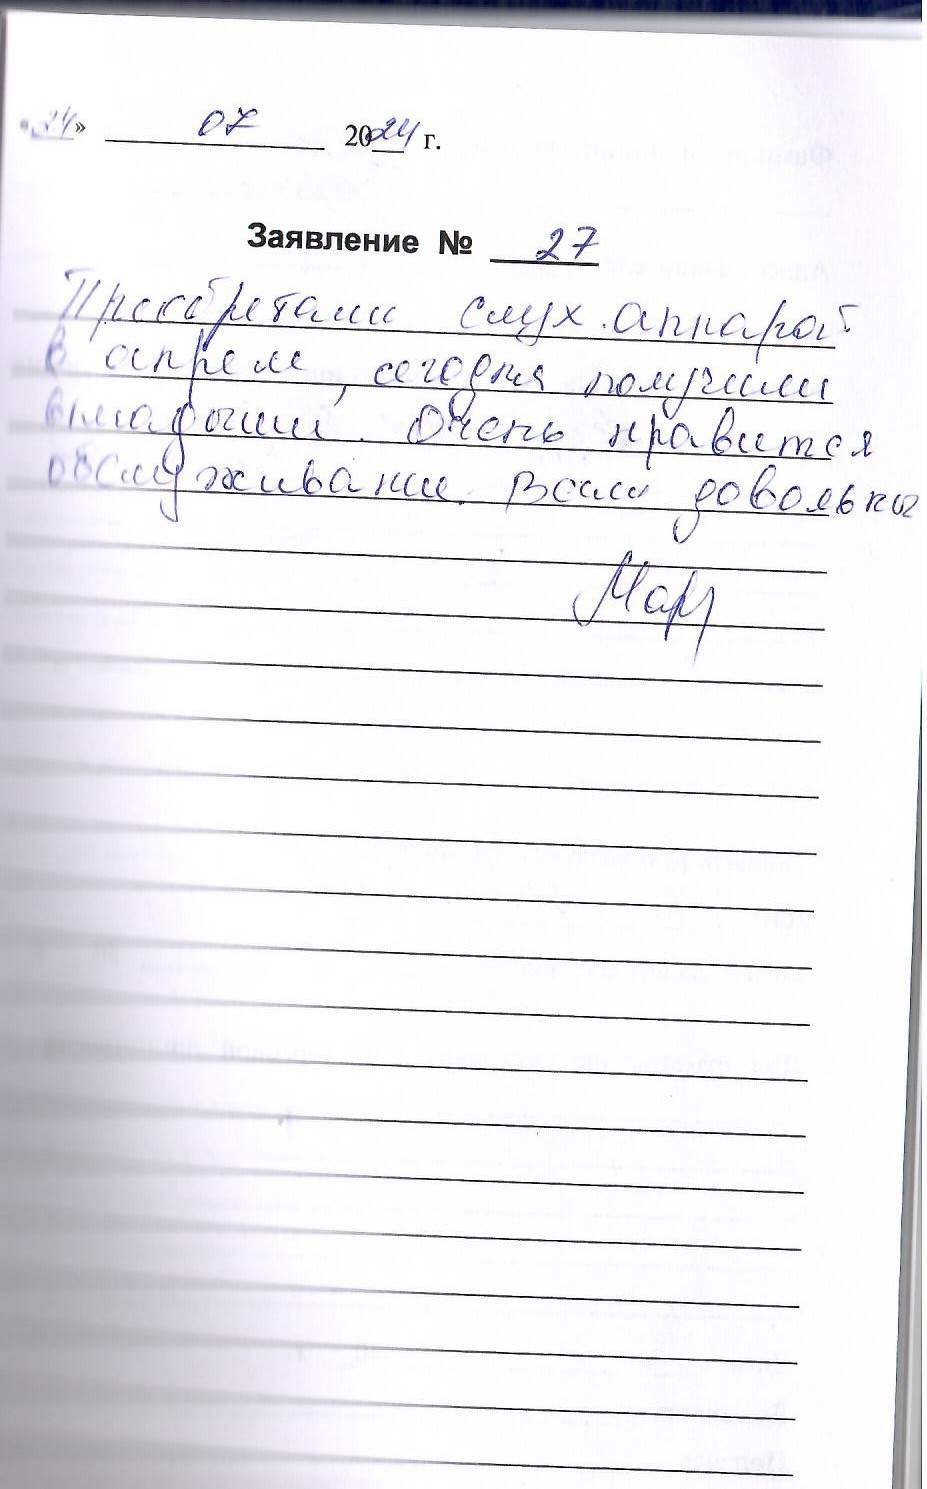 «24» 07 2024 г.
Заявление № 27
Приобретали слух. аппарат
в апреле, сегодня получили
вкладыши. Очень нравится
обслуживание. Всем довольны